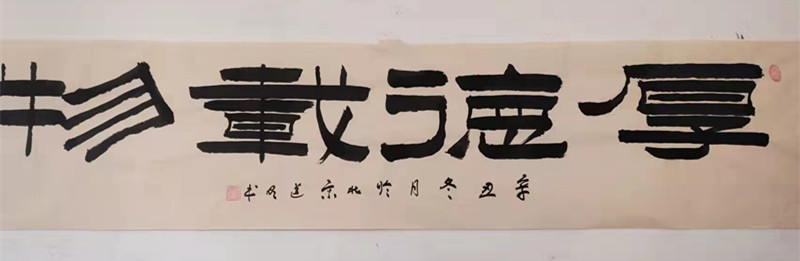 厚德載物
辛丑冬月於北京道书